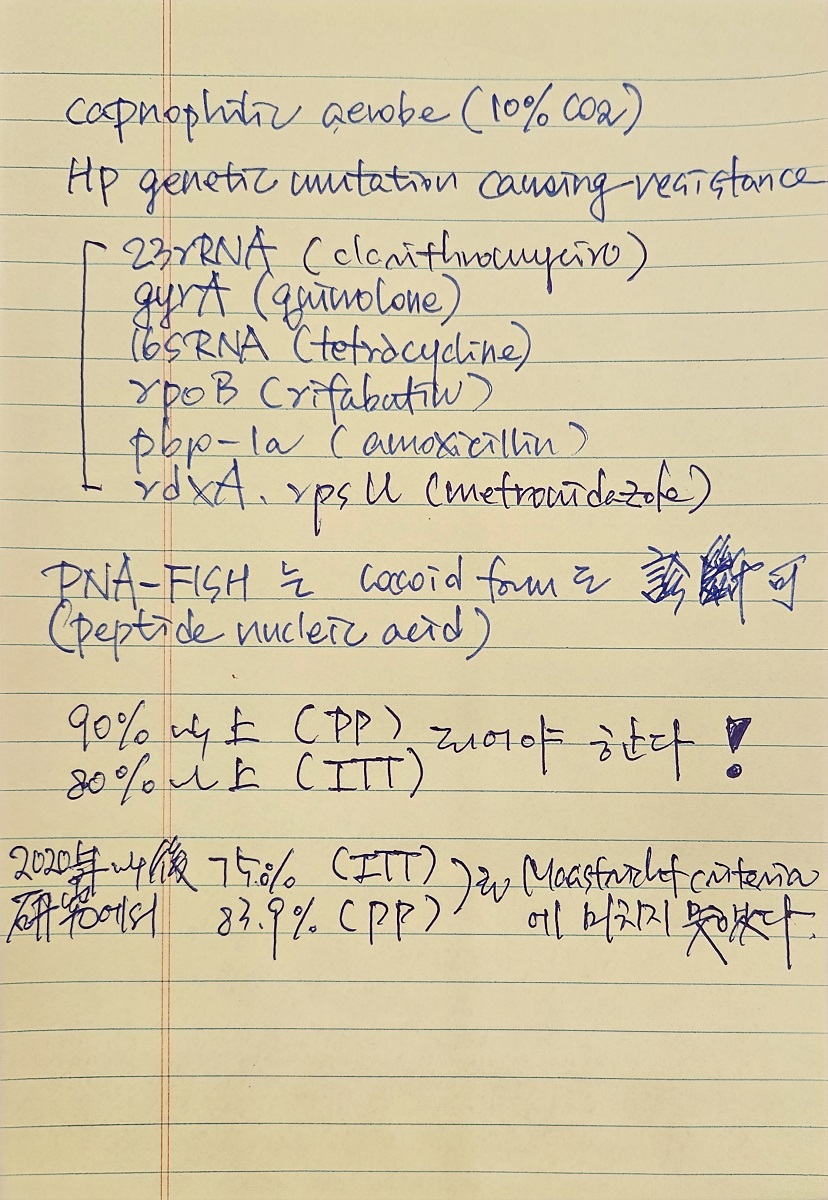 capnophilic aerobe (10% CO2)
Hp genetic mutation causing resistance
23rRNA (clarithromycin)
gyrA (quinolone)
16SRNA (tetracycline)
rpoB (rifabutin)
pbp-1a (amoxicillin)
rdxA. rpsU (metronidazole)
PNA-FISH 는 coccoid form도 診斷可
(peptide nucleic acid)
90% 以上 (PP) 되어야 한다!
80% 以上 (ITT)
2020年 以後 75.0% (ITT)
硏究에서 83.9% (PP)
로 Maastricht criteria
에 미치지 못하였다.